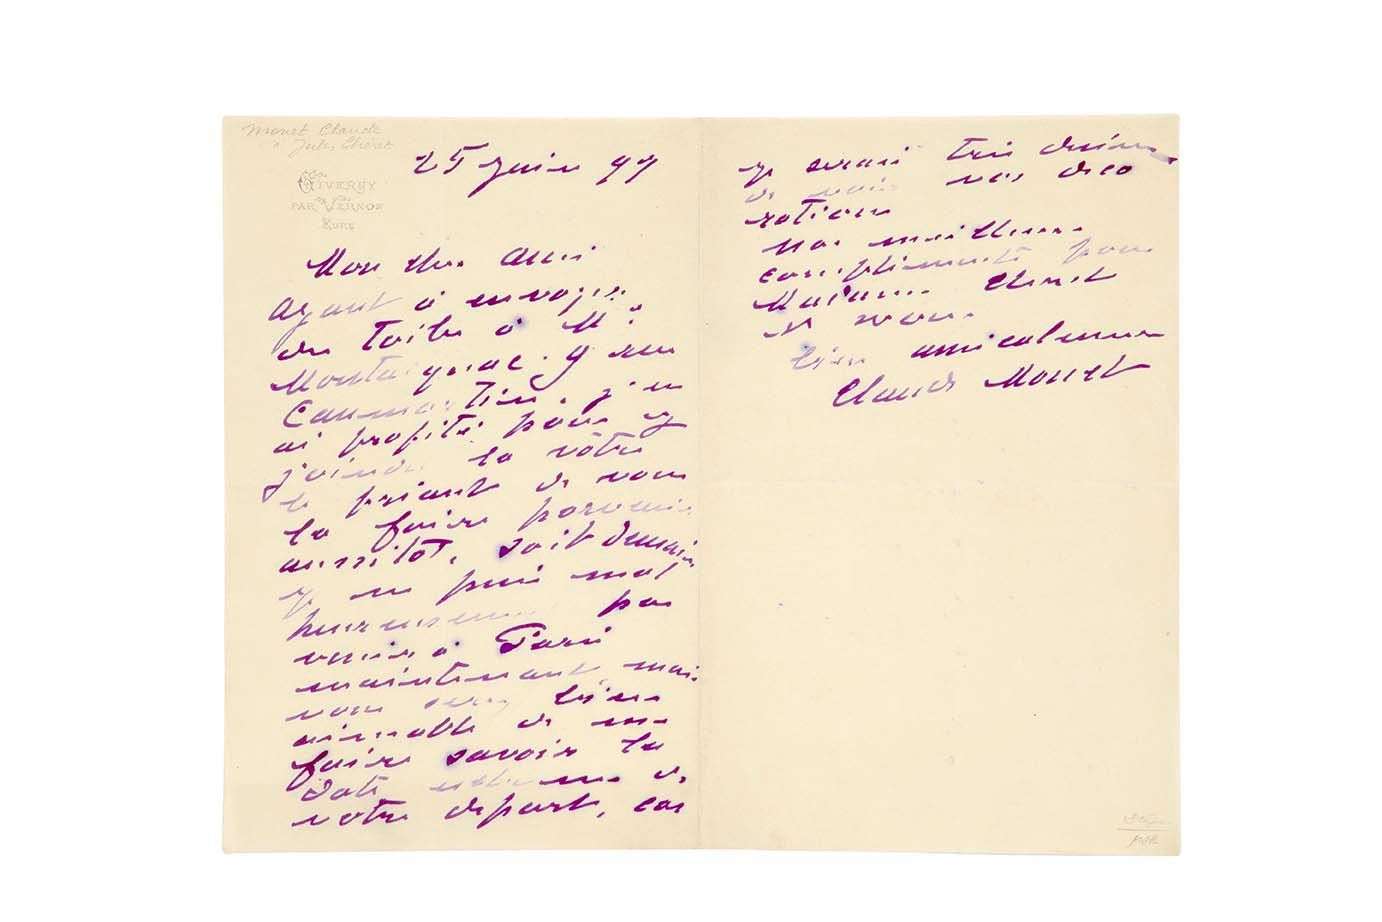 Monet Claude
à Jules Chéret
GIVERNY
PAR VERNON
EURE
25 juin 97
Mon cher ami
Ayant à envoyer
des toiles à Mr
Montaignac. 9 rue
Caumartin. j'en
ai profité pour y
joindre la vôtre
le priant de vous
la faire parvenir
aussitôt, soit demain
je ne puis mal
heureusement pas
venir à Paris
maintenant, mais
vous serez bien
aimable de me
faire savoir la
date extreme de
votre depart, car
je serais très désireux
de voir vos déco
rations
nos meilleurs
compliments pour
Madame Cheret
et vous
bien amicalement
Claude Monet